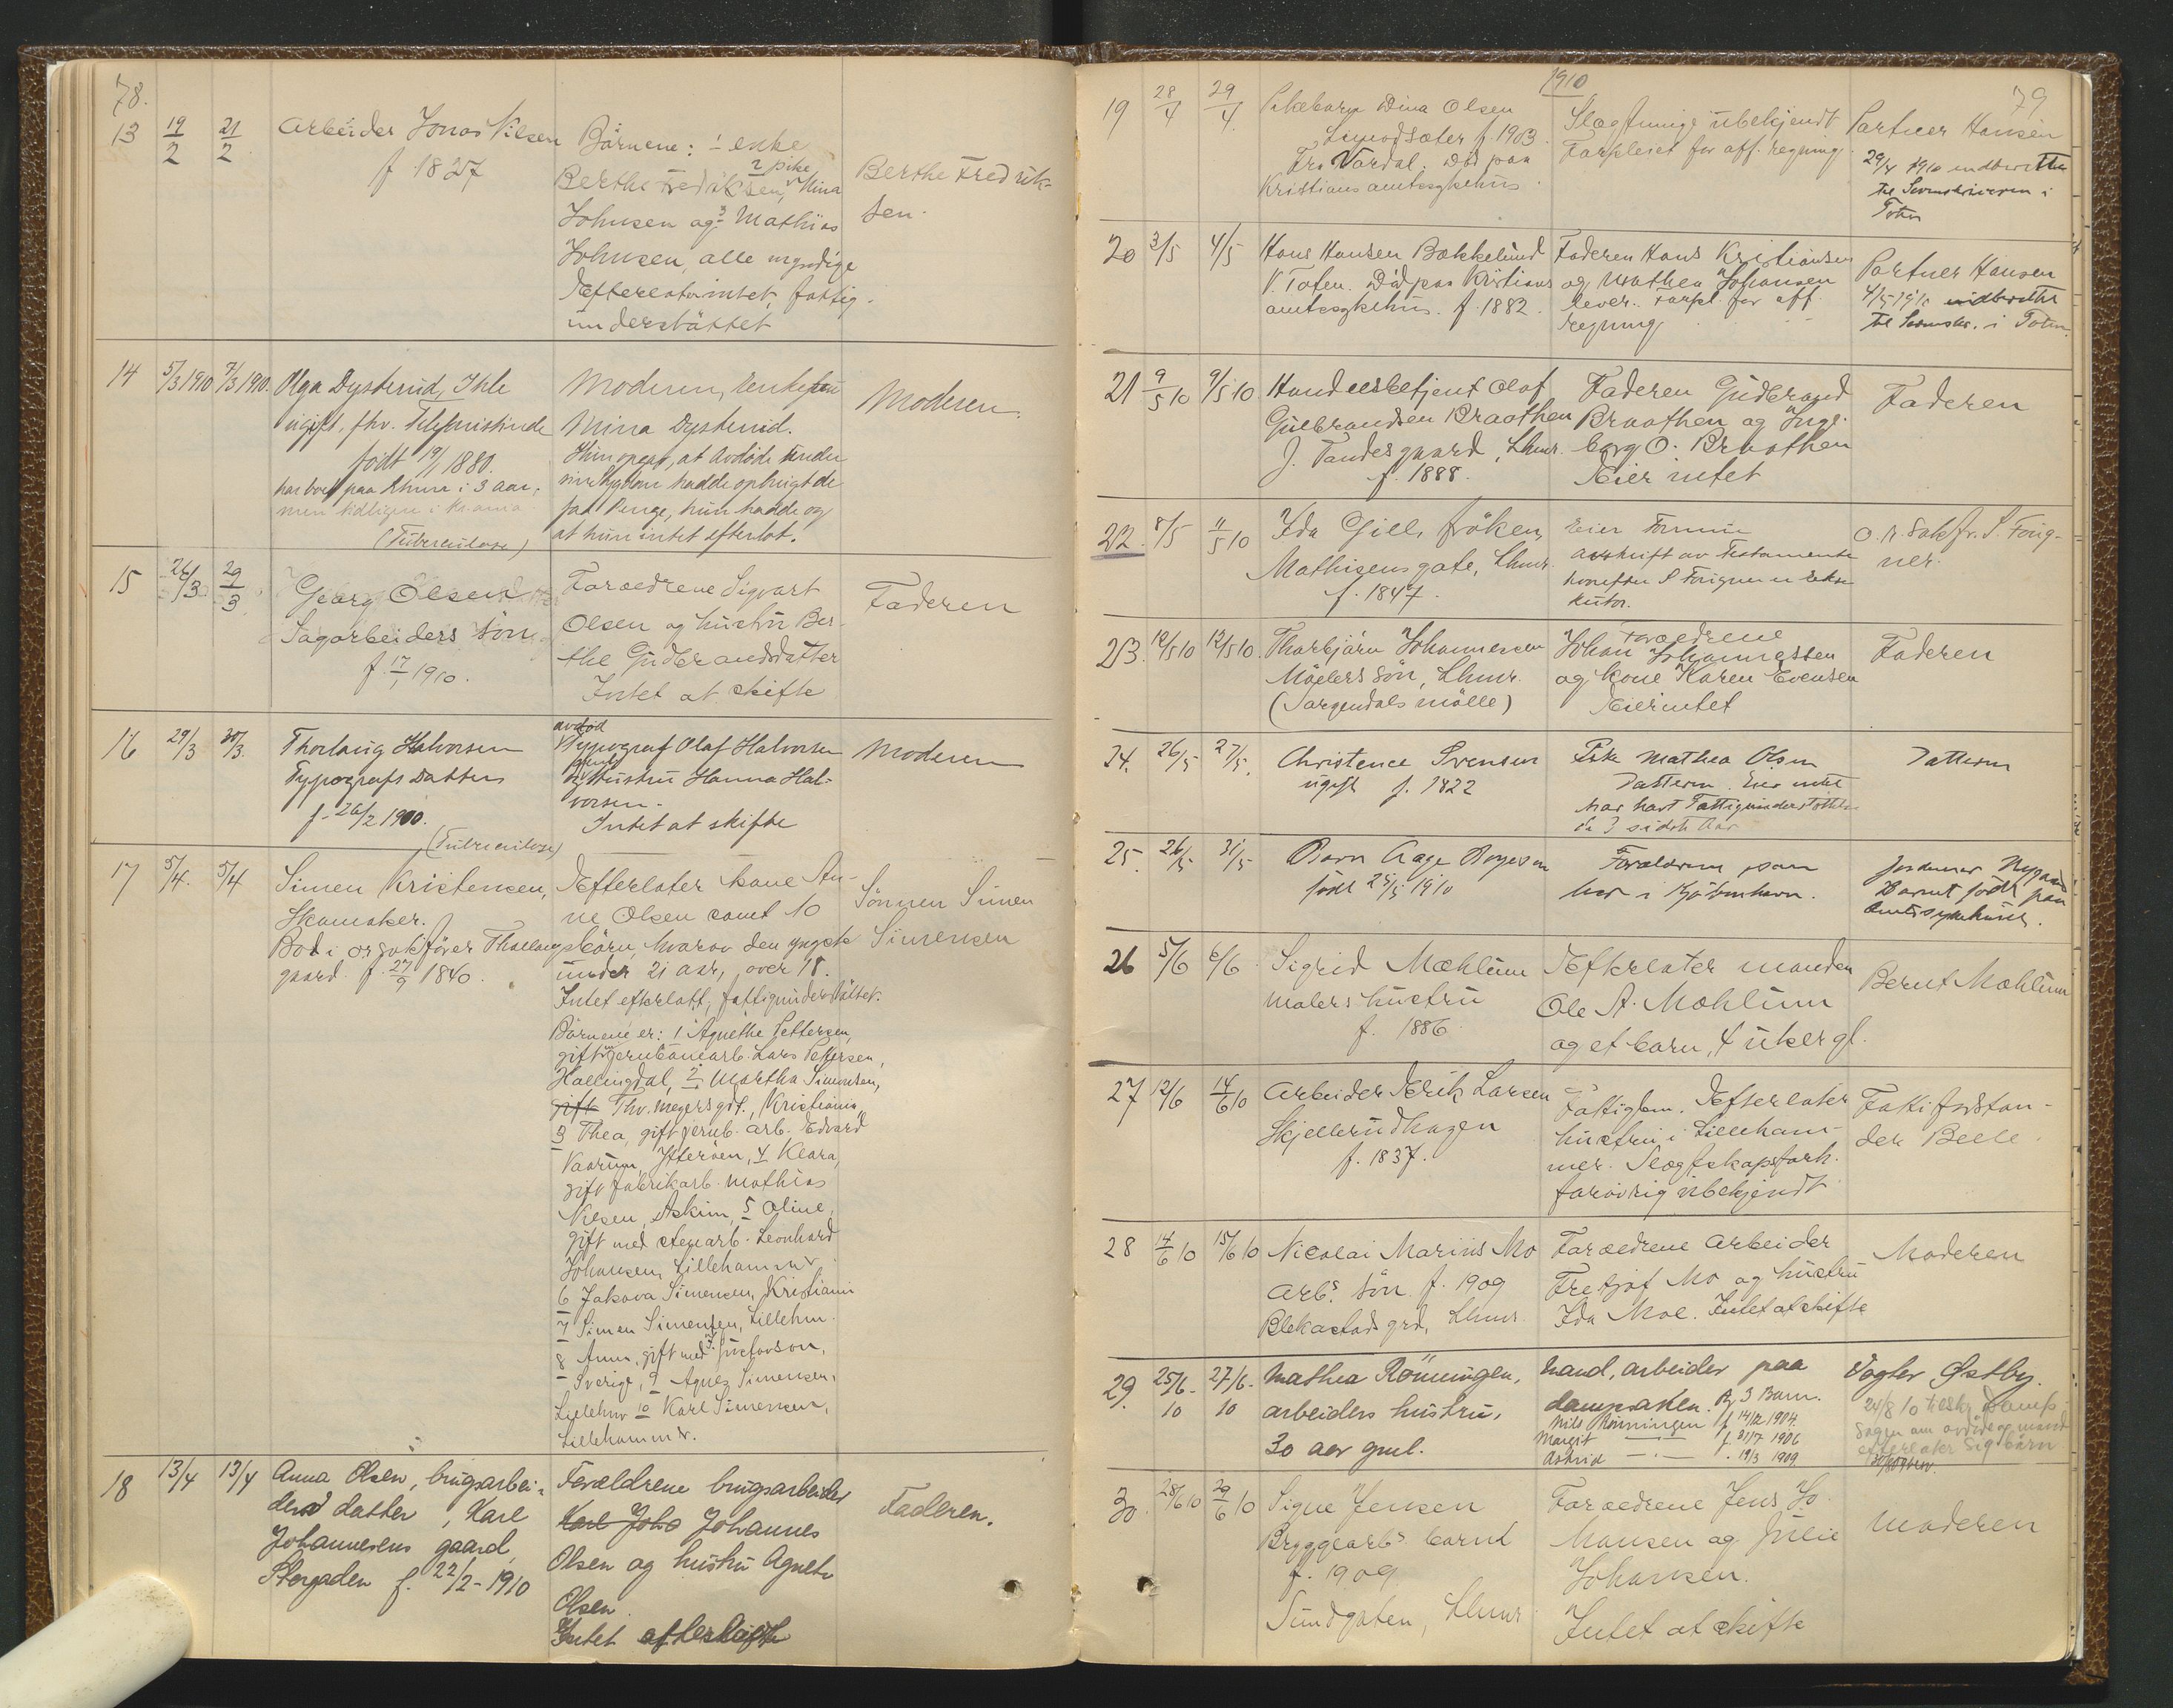 78.
13 19/2 21/2 Arbeider Jonas Nilsen
f 1827
Börnene: 1 enke
Berthe Fredriksen, 2 pike Mina
Johnsen og 3 Mathias
Johnsen, alle myndige
Efterlater intet, fattig-
understöttet
Berthe Fredrik-
sen.
14 5/3 1910 7/3 1910. Olga Dysterud, Ihle
ugift, fhv. Telefonistinde
født 19/1 1880.
har boet paa Lhmr i 3 aar,
men tidligere i Kr.ania
(Tuberculose)
Moderen, Enkefru
Mina Dysterud.
Hun opgav, at avdöde under
sin sygdom hadde opbrugt de
faa Penge, hun hadde og
at hun intet efterlot.
Moderen.
15 26/3 29/3 Georg Olsen
Sagarbeiders sön
f. 17/1 1910.
Foraeldrene Sigvart
Olsen og hustru Ber-
the Gudbrandsdatter
Intet at skifte
Faderen
16 29/3 30/3. Thorlaug Halvorsen
Typografs Datter
f. 26/2 1900.
(Tuberculose)
avdöd
Typograf Olaf Halvorsen
og Hustru Hanna Hal-
vorsen.
Intet at skifte
Moderen
17 5/4. 5/4 Simen Kristensen,
Skomaker.
Bod i orsakförer Thallaugs
gaard. f. 27/9 1840.
Efterlater kone An-
ne Olsen samt 10
börn, hvorav den yngste
under 21 aar, over 18.
Intet efterlatt, fattigunderstöttet.
Börnene er: 1 Agnethe Pettersen,
gift m jernbanearb. Lars Pettersen,
Hallingdal, 2 Martha Simensen,
gift Thv. Meyersgd., Kristiania
3 Thea, gift jernb. arb. Edvard
Vaarum, Ytteröen, 4 Klara,
gift fabrikarb. Mathias
Nilsen, Askim, 5 Oline,
gift med stenarb. Leonhard
Johansen, Lillehammer
6 Jakova Simensen, Kristiania
7 Simen Simensen, Lillehm.
8 Anna, gift med Gustavson,
Sverige, 9 Agnes Simensen,
Lillehmr 10 Karl Simensen,
Lillehammer.
Sönnen Simen
Simensen
18 13/4 13/4 Anna Olsen, brugsarbei-
ders datter, Karl
Johannesens gaard,
Storgaden f. 22/2-1910
Forældrene brugsarbeider
Karl Joha Johannes
Olsen og hustru Agnete
Olsen.
Intet at skifte
Faderen.
1910
79
19 28/4 29/4. Pikebarn Dina Olsen
f. 1903
Fra Vardal. Död paa
Kristians amtssykehus.
Slægtninge ubekjendt
Forpleiet for off. regning.
Portner Hansen
29/4 1910 indberettet
til Sorenskriveren i
Toten
20 3/5 4/5 Hans Hansen Bækkelund
V. Toten. Död paa Kristians
amtssykehus. f. 1882.
Faderen Hans Kristiansen
og Mathea Johansen
lever. Forpl. for off.
regning
Portner Hansen
4/5 1910 indberettet
til Sorenskr. i Toten.
21 9/5 10 9/5 10 Handelsbetjent Olaf
Gulbrandsen Braathen
J. Tandes gaard, Lhmr.
f. 1888.
Faderen Gudbrand
Braathen og Inge-
borg O. Braathen
Eier intet
Faderen
22 8/5 11/5 10 Ida Gill, fröken,
Mathisens gate, Lhmr.
f. 1847.
Eier Formue
Avskrift av Testamente
hvorefter S Fougner er Ekse
kutor.
O.r. Sakför. S. Foug-
ner.
23. 12/5 10 12/5 10. Thorbjörn Johannesen
Möllers sön, Lhmr.
(Jorgendals mölle)
Foraeldrene
Johan Johannessen
og kone Karen Evensen
Eier intet
Faderen
24. 26/5 27/5. Christence Svensen
ugift f. 1822
Pike Mathea Olsen
Datteren. Eier intet
har havt Fattigunderstöttelse
de 3 sidste Aar
Datteren
25. 26/5 31/5 Barn Aage Boyesen
födt 25/5 1910
Foraeldrene som
bor i Kjöbenhavn.
Jordmor Nygaard
Barnet födt paa
Amtssykehuset.
26 5/6 6/6. Sigrid Mæhlum
Malers hustru
f. 1886
Efterlater manden
Ole A. Mæhlum
og et barn, 4 uker gl.
Bernt Mæhlum
27 12/6 14/6 10 Arbeider Erik Larsen
Skjellerudhagen
f. 1837.
Fattiglem. Efterlater
hustru i Lilleham-
mer. Slægtskapsforh.
forövrig ubekjendt
Fattigforstan-
der Belle.
28 14/6 10 15/6 10 Nicolai Marius Mo
Arbs. sön f. 1909
Blekastads grd, Lhmr.
Foraeldrene Arbeider
Fretjof Mo og hustru
Ida Moe. Intet at skifte
Moderen
29. 25/6-10 27/6-10 Mathea Rönningen,
arbeiders hustru,
30 aar gml.
Mand, arbeider paa
dampsagen. Og 3 Barn.
Nils Rönningen f 14/12 1904.
Margit —"— f. 31/7 1906
Astrid —"— f. 19/3 1909
Vogter Østby.
24/8 10
30. 28/6 10 29/6 10 Signe Jensen
Bryggearbs barnd
f. 1909
Sundgaten, Lhmr
Foraeldrene Jens Jo-
hansen og Julie
Johansen.
Intet at skifte
Moderen